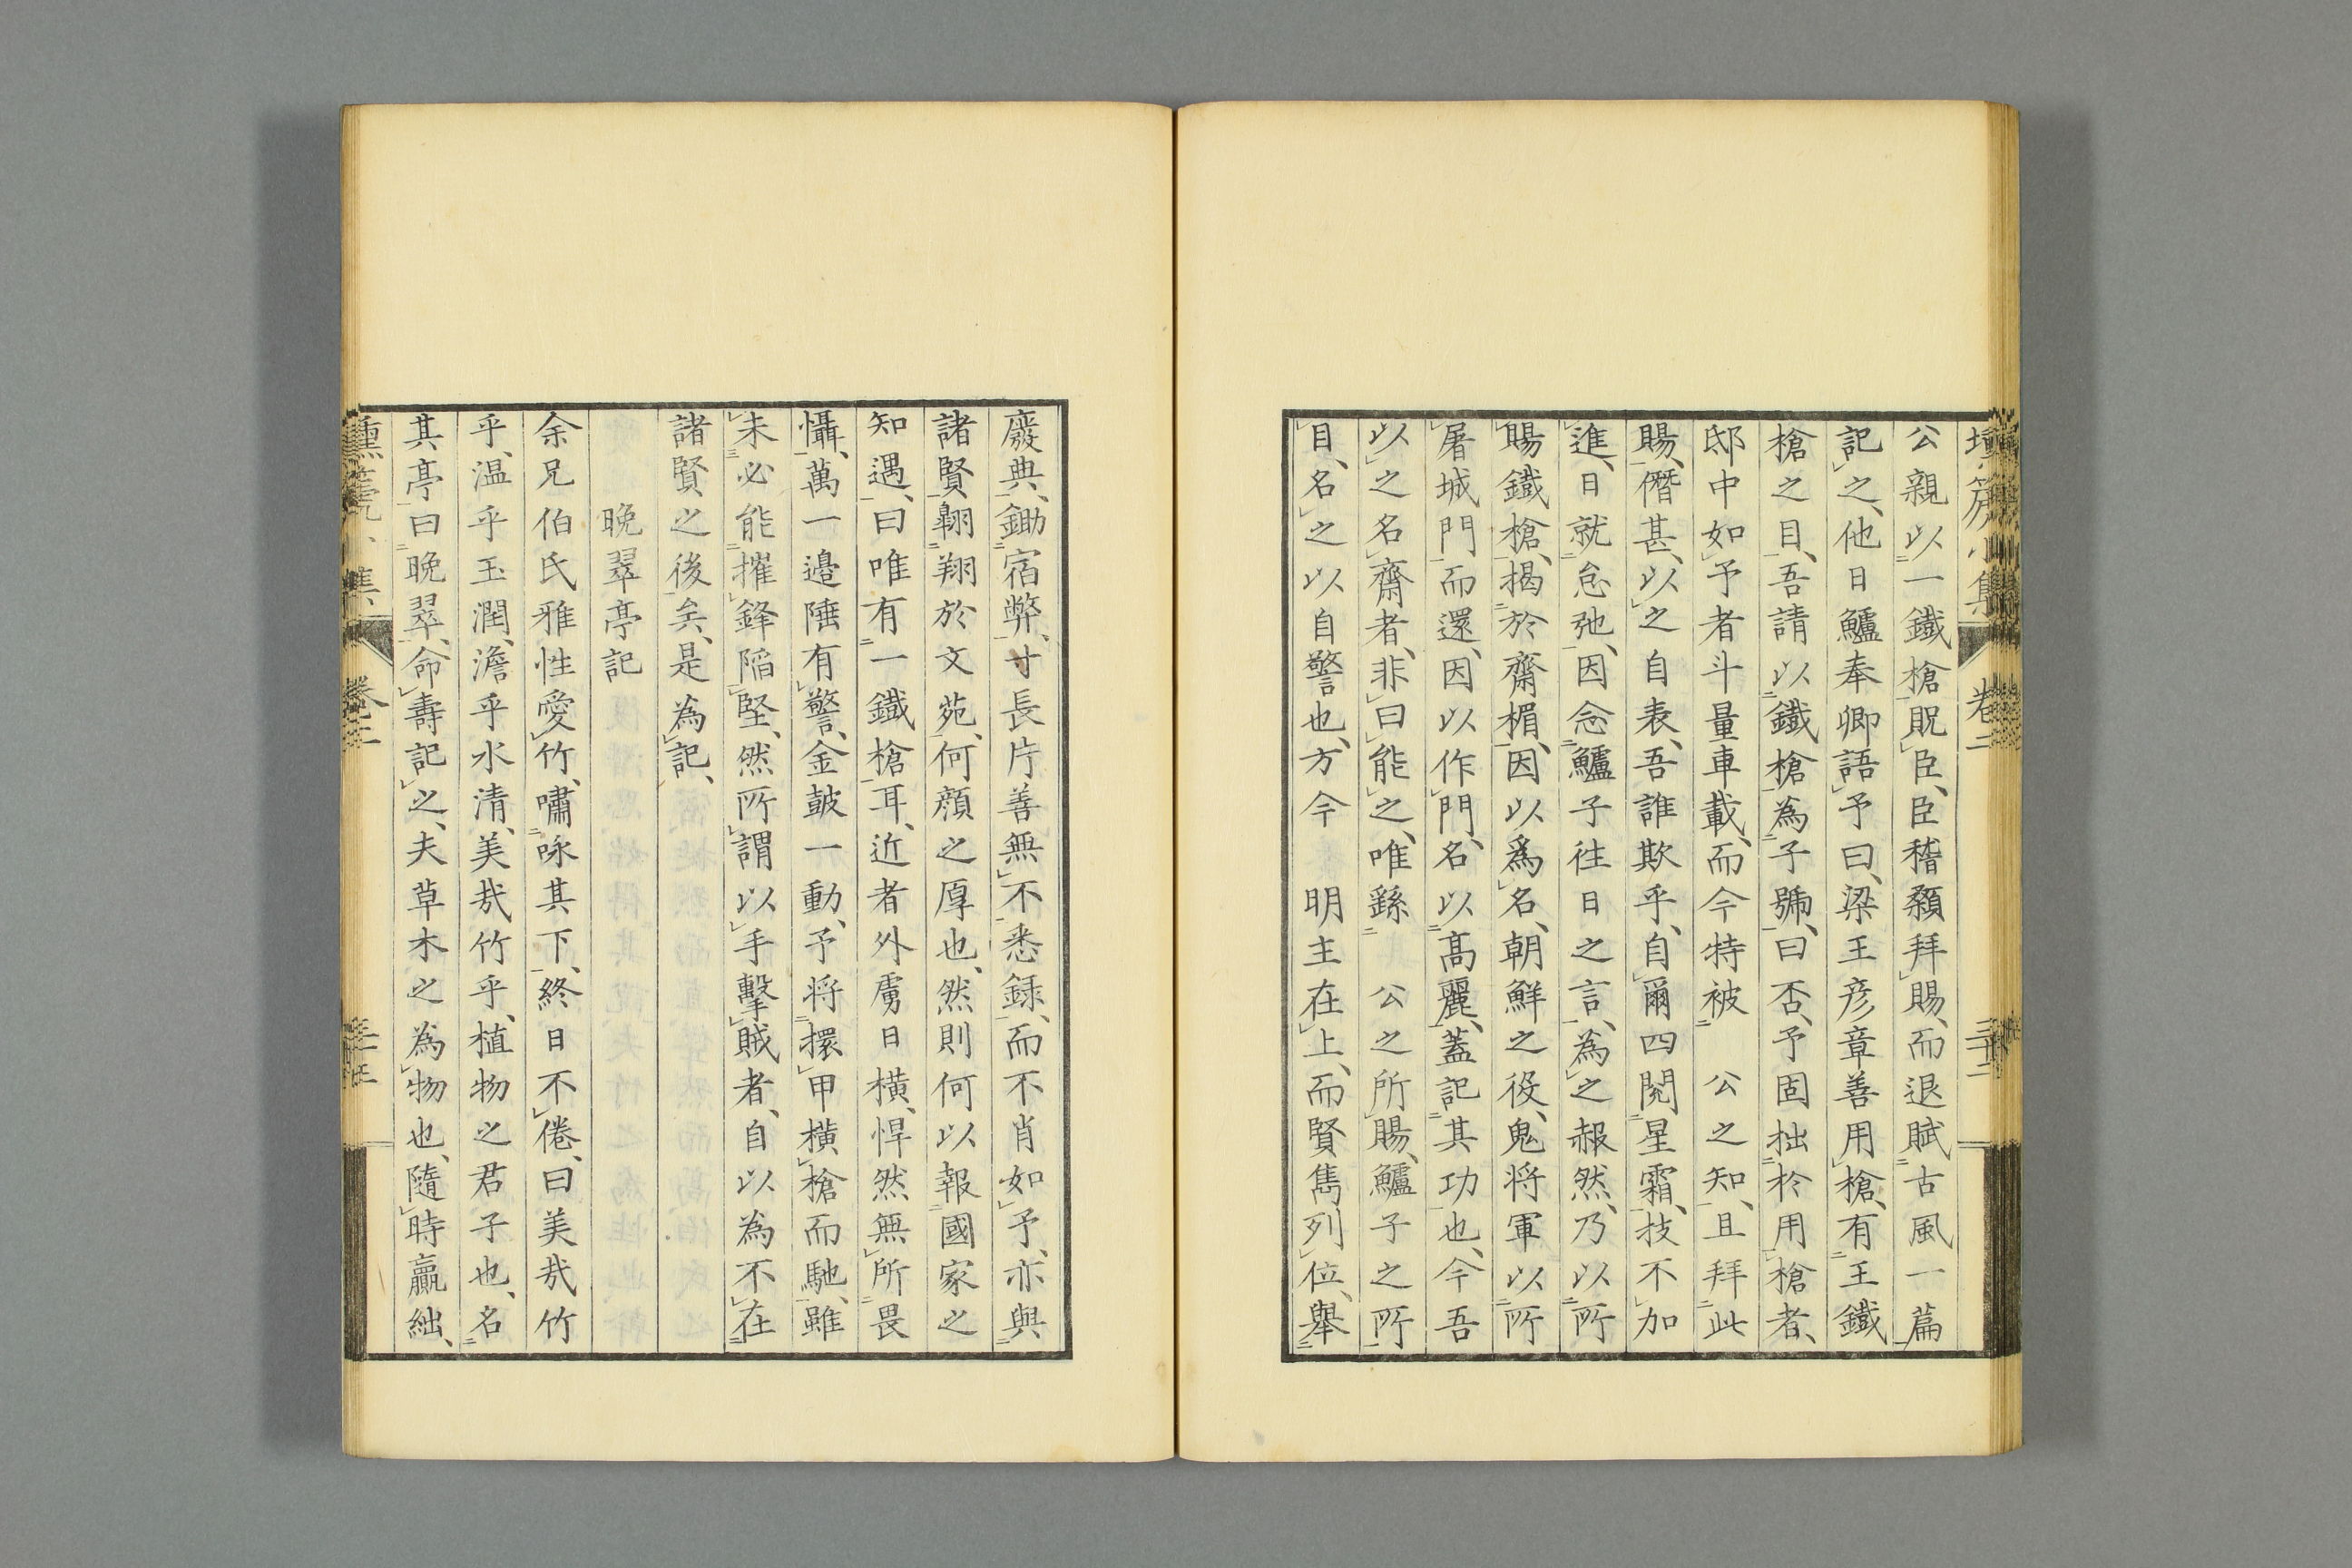 公親以一鐵槍貺臣、臣稽顙拜賜、而退賦古風一篇
記之、他日鱸奉卿語予曰、梁王彦章善用槍、有王鐵
槍之目、吾請以鐵槍為子號、曰否、予固拙於用槍者、
邸中如予者斗量車載、而今特被　公之知、且拜此
賜、僭甚、以之自表、吾誰欺乎、自爾四閱星霜、技不加
進、日就怠弛、因念鱸子往日之言、為之赧然、乃以所
賜鐵槍、揭於齋楣、因以爲名、朝鮮之役、鬼将軍以所
屠城門而還、因以作門、名以高麗、蓋記其功也、今吾
以之名齋者、非曰能之、唯繇　公之所賜、鱸子之所
目、名之以自警也、方今　明主在上、而賢雋列位、舉
廢典、鋤宿弊、寸長片善無不悉録、而不肖如予、亦與
諸賢翺翔於文苑、何顔之厚也、然則何以報國家之
知遇、曰唯有一鐵槍耳、近者外虜日横、悍然無所畏
懾、萬一邊陲有警、金皷一動、予将擐甲橫槍而馳、雖
未必能摧鋒陷堅、然所謂以手擊賊者、自以為不在
諸賢之後矣、是為記、
晩翠亭記
余兄伯氏雅性愛竹、嘯咏其下、終日不倦、曰美哉竹
乎、温乎玉潤、澹乎水清、美哉竹乎、植物之君子也、名
其亭曰晩翠、命壽記之、夫草木之為物也、隨時贏絀、
卷二